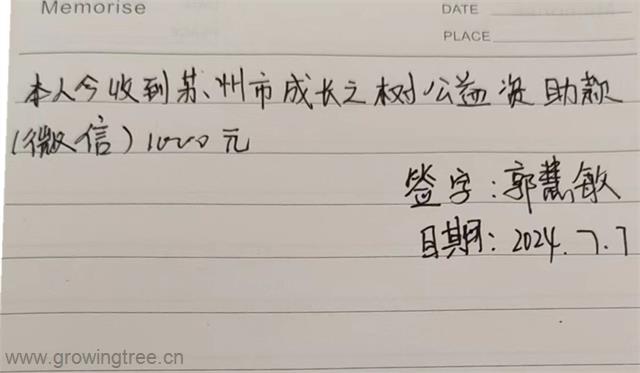 Memorise
DATE
PLACE
本人今收到苏州市成长之树公益资助款
(微信)1000元
签字:郭慧敏
日期:2024.7.7
www.growingtree.cn